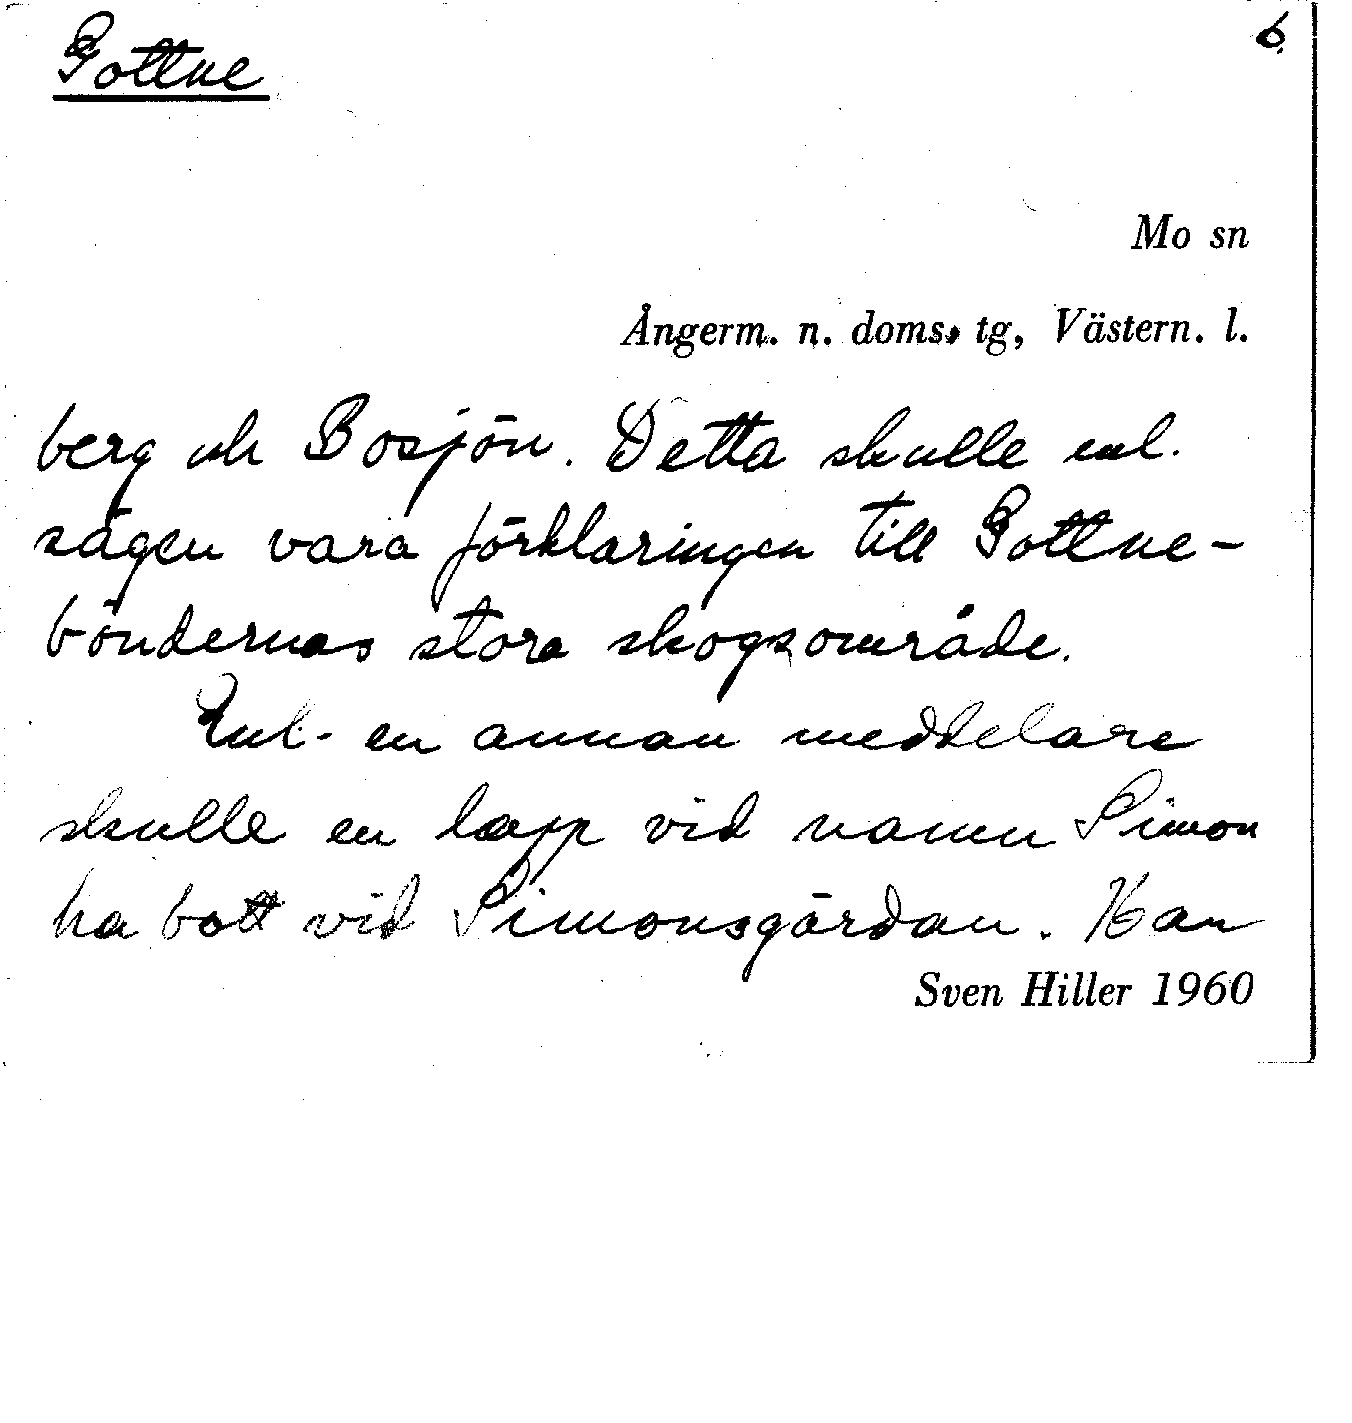 Gottne
6.
Mo sn
Ångerm. n. doms. tg, Västern. l.
berg och Bosjön. Detta skulle enl.
sägen vara förklaringen till Gottne-
böndernas stora skogsområde.
Enl. en annan meddelare
skulle en lapp vid namn Simon
ha bott vid Simonsgärdan. Han
Sven Hiller 1960